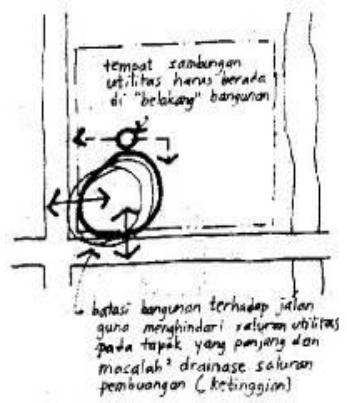 tempat sambungan
utilitas harus berada
di "belakang" bangunan
batasi bangunan terhadap jalan
guna menghindari saluran utilitas
pada tapak yang panjang dan
masalah² drainase saluran
pembuangan (ketinggian)